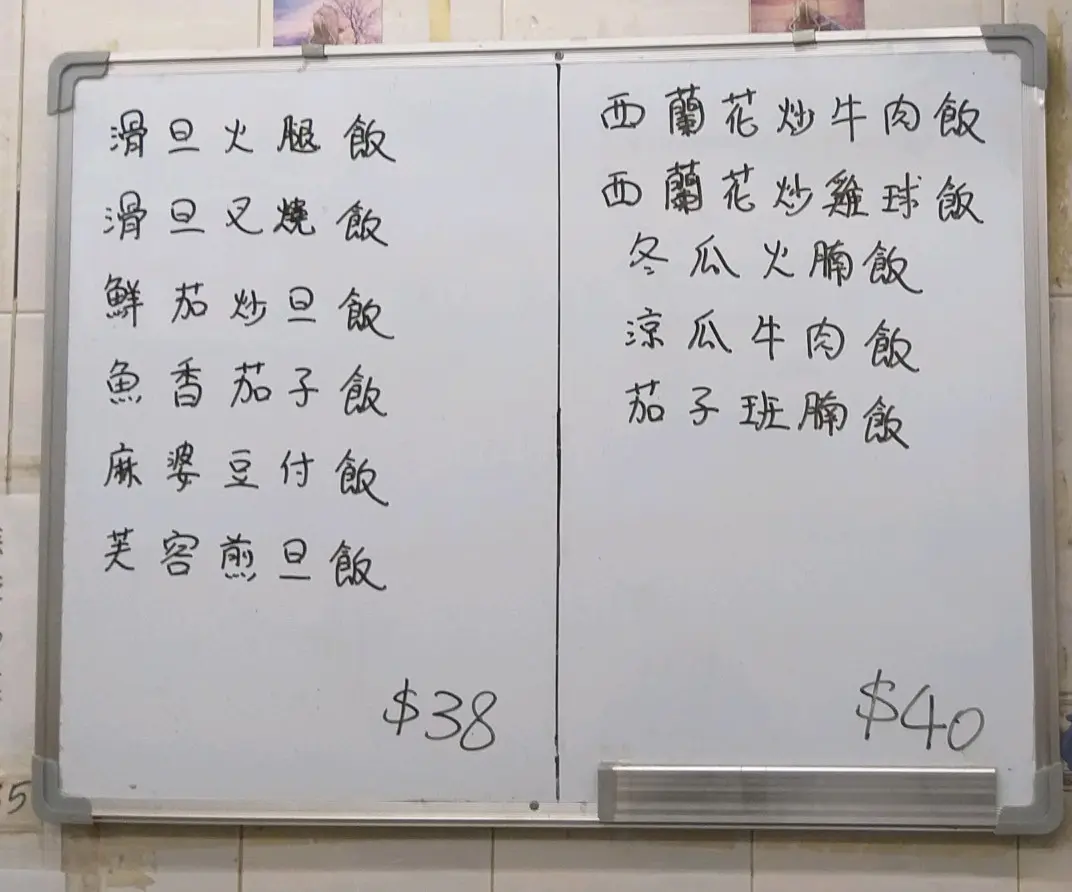 滑旦火腿飯
滑旦叉燒飯
鮮茄炒旦飯
魚香茄子飯
麻婆豆付飯
芙容煎旦飯
$38
西蘭花炒牛肉飯
西蘭花炒雞球飯
冬瓜火腩飯
涼瓜牛肉飯
茄子班腩飯
$40